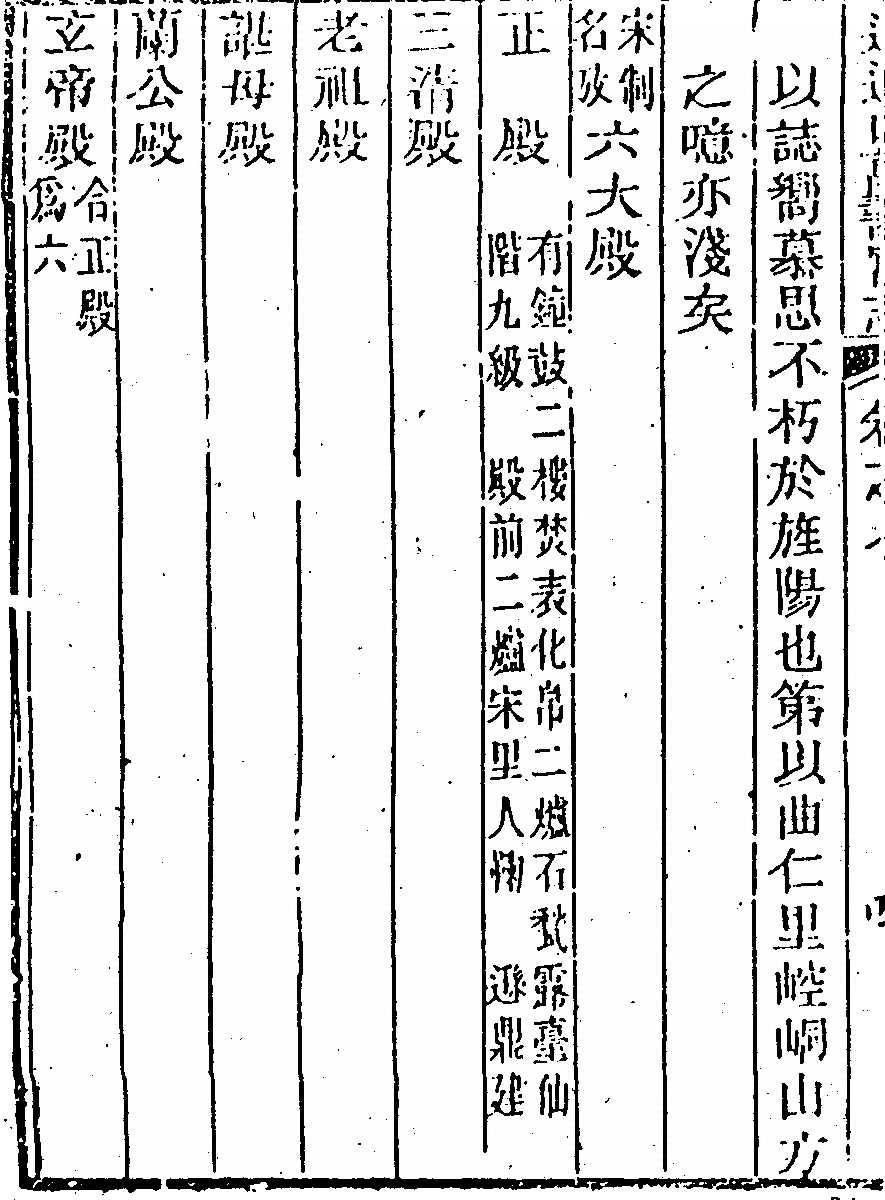 以誌嚮慕思不朽於旌陽也第以曲仁里崆峒山方
之噫亦淺矣
宋制名攷六大殿
正殿 有鐘鼓二樓焚表化帛二爐石甃露臺仙
階九級 殿前二爐宋里人 遜鼎建
三清殿
老祖殿
諶母殿
蘭公殿
玄帝殿 合正殿
爲六